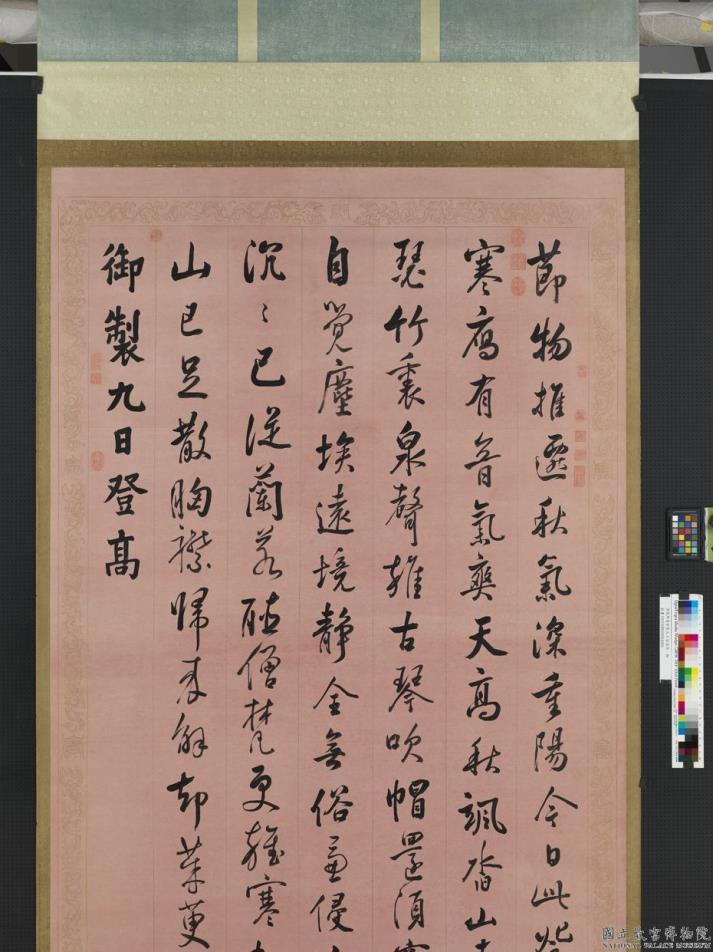 節物推遷秋氣深重陽今日此登
寒鴈有音氣爽天高秋颯踏山
瑟竹裏泉聲雜古琴吹帽還須
自覺塵埃遠境靜全無俗慮侵
沉〻已從蘭若聽僧梵更雜寒
山已足散胸襟歸來解却茱萸
御製九日登高
國立故宮博物院
NATIONAL PALACE MUSEUM